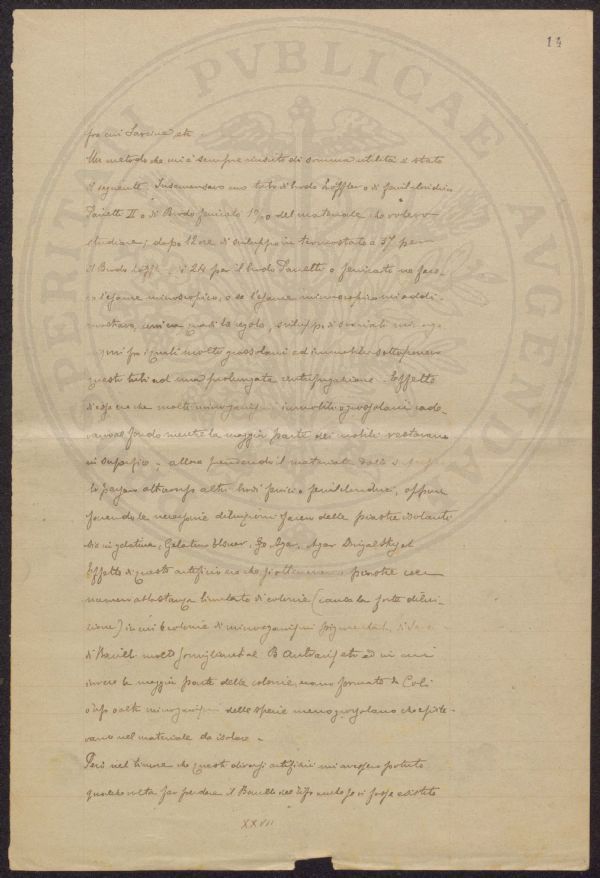 14
fra cui Sarcine etc.
Un metodo che mi è sempre riuscito di somma utilità è stato
il seguente. Insemensavo uno tubo di brodo Löffler o di
Panetti II o di Brodo fenicato 1%0 del materiale che volevo
studiare; dopo 12 ore di sviluppo in termostato a 37 per
il Brodo Löffl e 24 per il brodo Panetti o fenicato ne face-
vo l'esame microscopico, e se l'esame microscopico mi addi-
mostrava, come era quasi la regola, sviluppo di svariati
fra i quali molti grossolani ed immobili sottoponevo
questi tubi ad una prolungata centrifugazione. Effetto
di essa era che molti immobili e grossolani cade-
vano al fondo mentre la maggior parte dei mobili restavano
in superficie; allora prendendo il materiale dalla
lo passavo altri brodi fenici o oppure
facendo le necessarie diluizioni facevo delle piastre isolanti
sia in gelatina, Gelatina Elsner, Agar, Agar Drigalsky et
Effetto di questo artificio era che si ottenevano piastre con
numero abbastanza limitato di colonie (causa la forte dilui-
zione) in cui le colonie di microrganismi di
di Bacilli molto somiglianti al B Antracis etc ed in cui
invece la maggior parte delle colonie erano formate da Coli
o tifo o altri delle specie meno grossolane che esiste-
vano nel materiale da isolare.
Però nel timore che questi diversi artifizii mi avessero potuto
qualche volta far perdere il Bacillo del Tifo anche se vi fosse esistito
XXVII
PERITATI PVBLICAE AVGENDAE